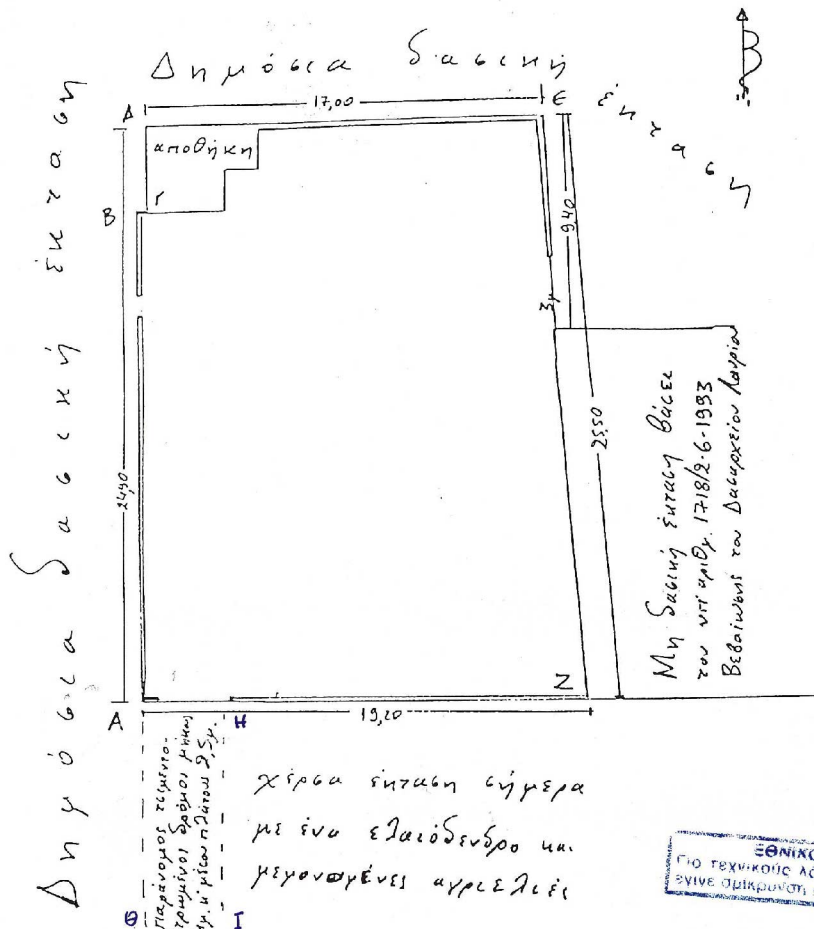 Δημόσια δασική έκταση
Β
17,00
Δ
Ε
αποθήκη
Β
Γ
9,40
3μ
24,90
25,50
Δημόσια δασική έκταση
Μη δασική έκταση βάσει
του υπ' αριθμ. 1718/2-6-1993
Βεβαίωσης του Δασαρχείου Λαυρίου
Α
Η
Ζ
19,20
Παράνομος τσιμεντο-
τρωμένος δρόμος μήκους
μ. κ μέσου πλάτους
Θ
Ι
χέρσα έκταση σήμερα
με ένα ελαιόδενδρο και
μεμονωμένες αγριελιές
ΕΘΝΙΚΟ
Για τεχνικούς λό
έγινε σμίκρυνση